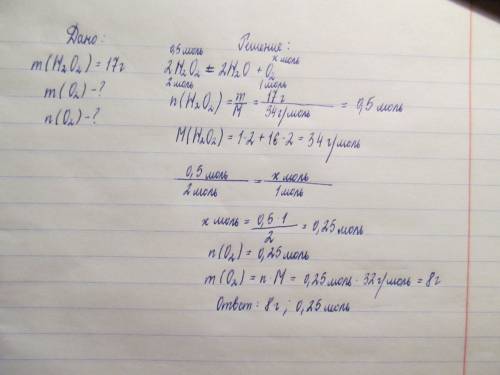 Дано:
m(H₂O₂) = 17г
m(O₂) - ?
n(O₂) - ?
Решение:
0,5 моль x моль
2H₂O₂ = 2H₂O + O₂
2 моль 1 моль
n(H₂O₂) = m/M = 17 г/34 г/моль = 0,5 моль
M(H₂O₂) = 1·2 + 16·2 = 34 г/моль
0,5 моль/2 моль = x моль/1 моль
x моль = 0,5·1/2 = 0,25 моль
n(O₂) = 0,25 моль
m(O₂) = n·M = 0,25 моль · 32 г/моль = 8г
Ответ: 8г ; 0,25 моль